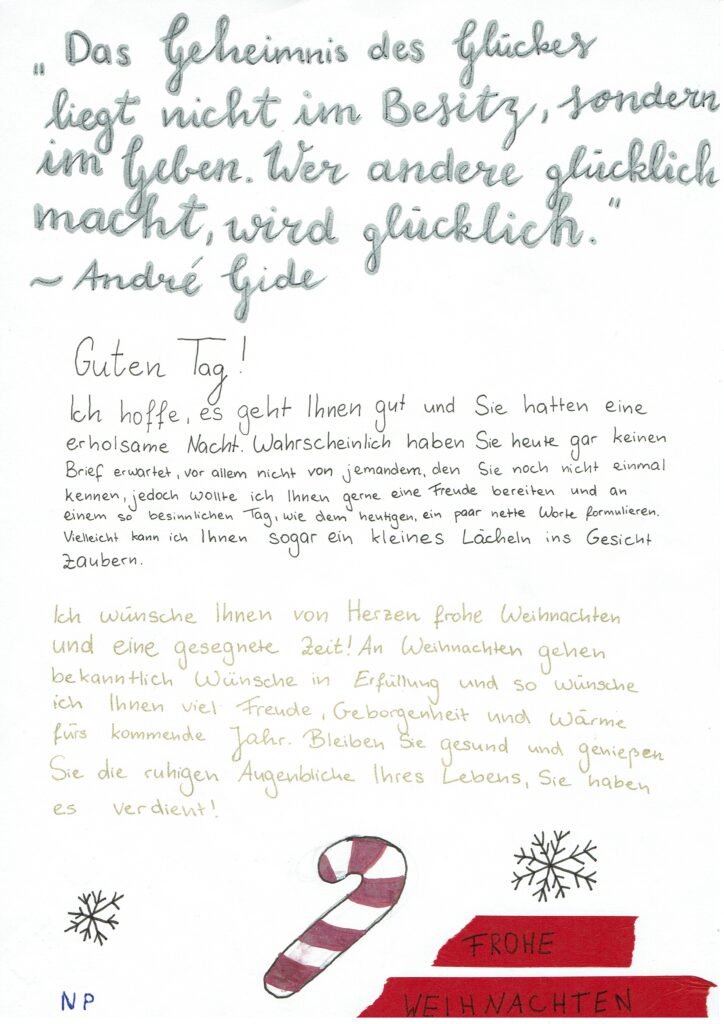 „Das Geheimnis des Glückes
liegt nicht im Besitz, sondern
im Geben. Wer andere glücklich
macht, wird glücklich.“
~ André Gide
Guten Tag!
Ich hoffe, es geht Ihnen gut und Sie hatten eine
erholsame Nacht. Wahrscheinlich haben Sie heute gar keinen
Brief erwartet, vor allem nicht von jemandem, den Sie noch nicht einmal
kennen, jedoch wollte ich Ihnen gerne eine Freude bereiten und an
einem so besinnlichen Tag, wie dem heutigen, ein paar nette Worte formulieren.
Vielleicht kann ich Ihnen sogar ein kleines Lächeln ins Gesicht
zaubern.
Ich wünsche Ihnen von Herzen frohe Weihnachten
und eine gesegnete Zeit! An Weihnachten gehen
bekanntlich Wünsche in Erfüllung und so wünsche
ich Ihnen viel Freude, Geborgenheit und Wärme
fürs kommende Jahr. Bleiben Sie gesund und genießen
Sie die ruhigen Augenblicke Ihres Lebens, Sie haben
es verdient!
FROHE
WEIHNACHTEN
NP